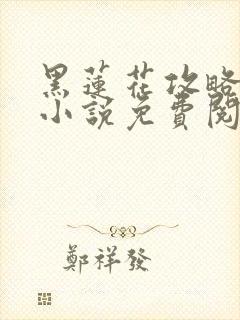 黑蓮花攻略
小說免費閱
鄭祥發